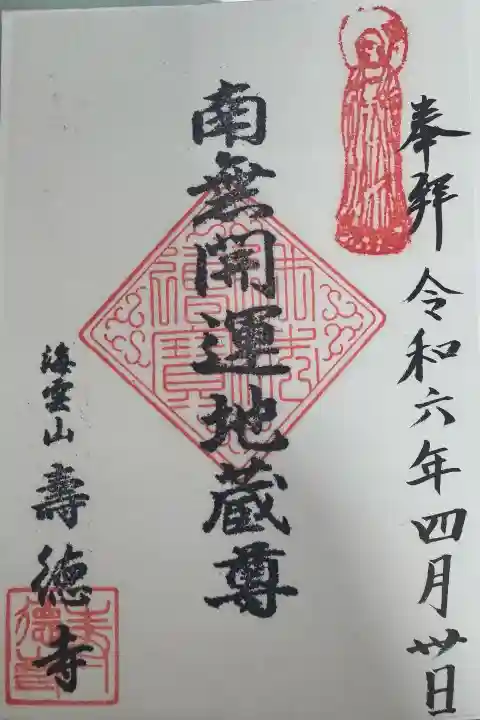 奉拝 令和六年四月卅日
南無開運地蔵尊
海雲山 壽徳寺